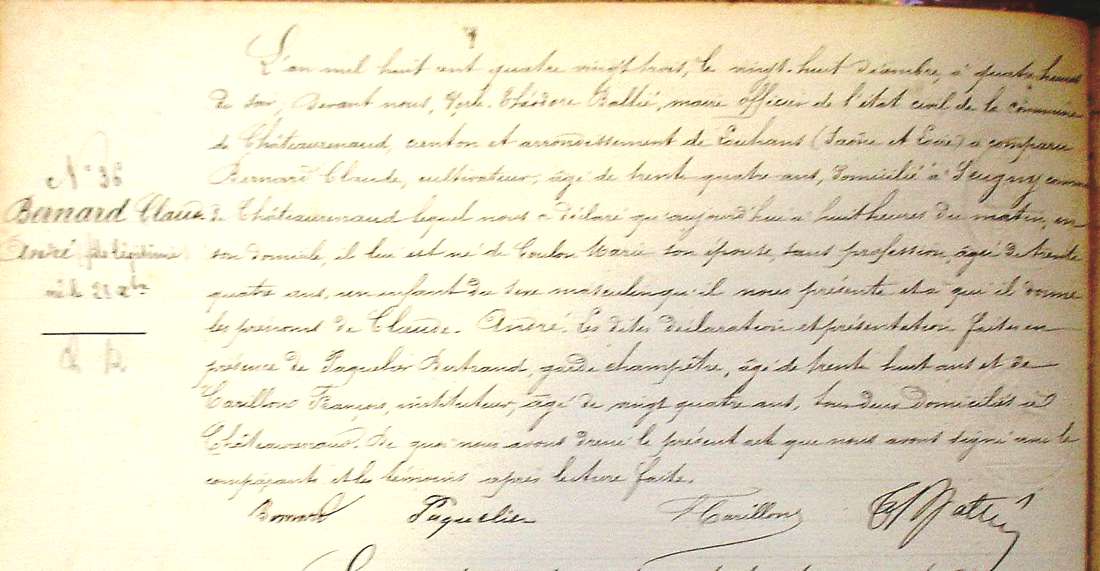 N° 36
Bernard Claude
André fils légitime
né le 28 xbre
L'an mil huit cent quatre vingt trois, le vingt-huit décembre, à quatre heures
du soir, devant nous, Théodore Ballié, maire officier de l'état civil de la commune
de Châteaurenaud, canton et arrondissement de Louhans (Saône et Loire) a comparu
Bernard Claude, cultivateur, âgé de trente quatre ans, domicilié à Seugny commune
de Châteaurenaud lequel nous a déclaré qu'aujourd'hui à huit heures du matin, en
son domicile, il lui est né de Coulon Marie son épouse, sans profession, âgée de trente
quatre ans, un enfant du sexe masculin qu'il nous présente et à qui il donne
les prénoms de Claude-André. Les dites déclaration et présentation faites en
présence de Paquelier Bertrand, garde champêtre, âgé de trente huit ans et de
Carillon François, instituteur, âgé de vingt quatre ans, tous deux domiciliés à
Châteaurenaud. De quoi nous avons dressé le présent acte que nous avons signé avec le
comparant et les témoins après lecture faite.
Bernard Paquelier Carillon